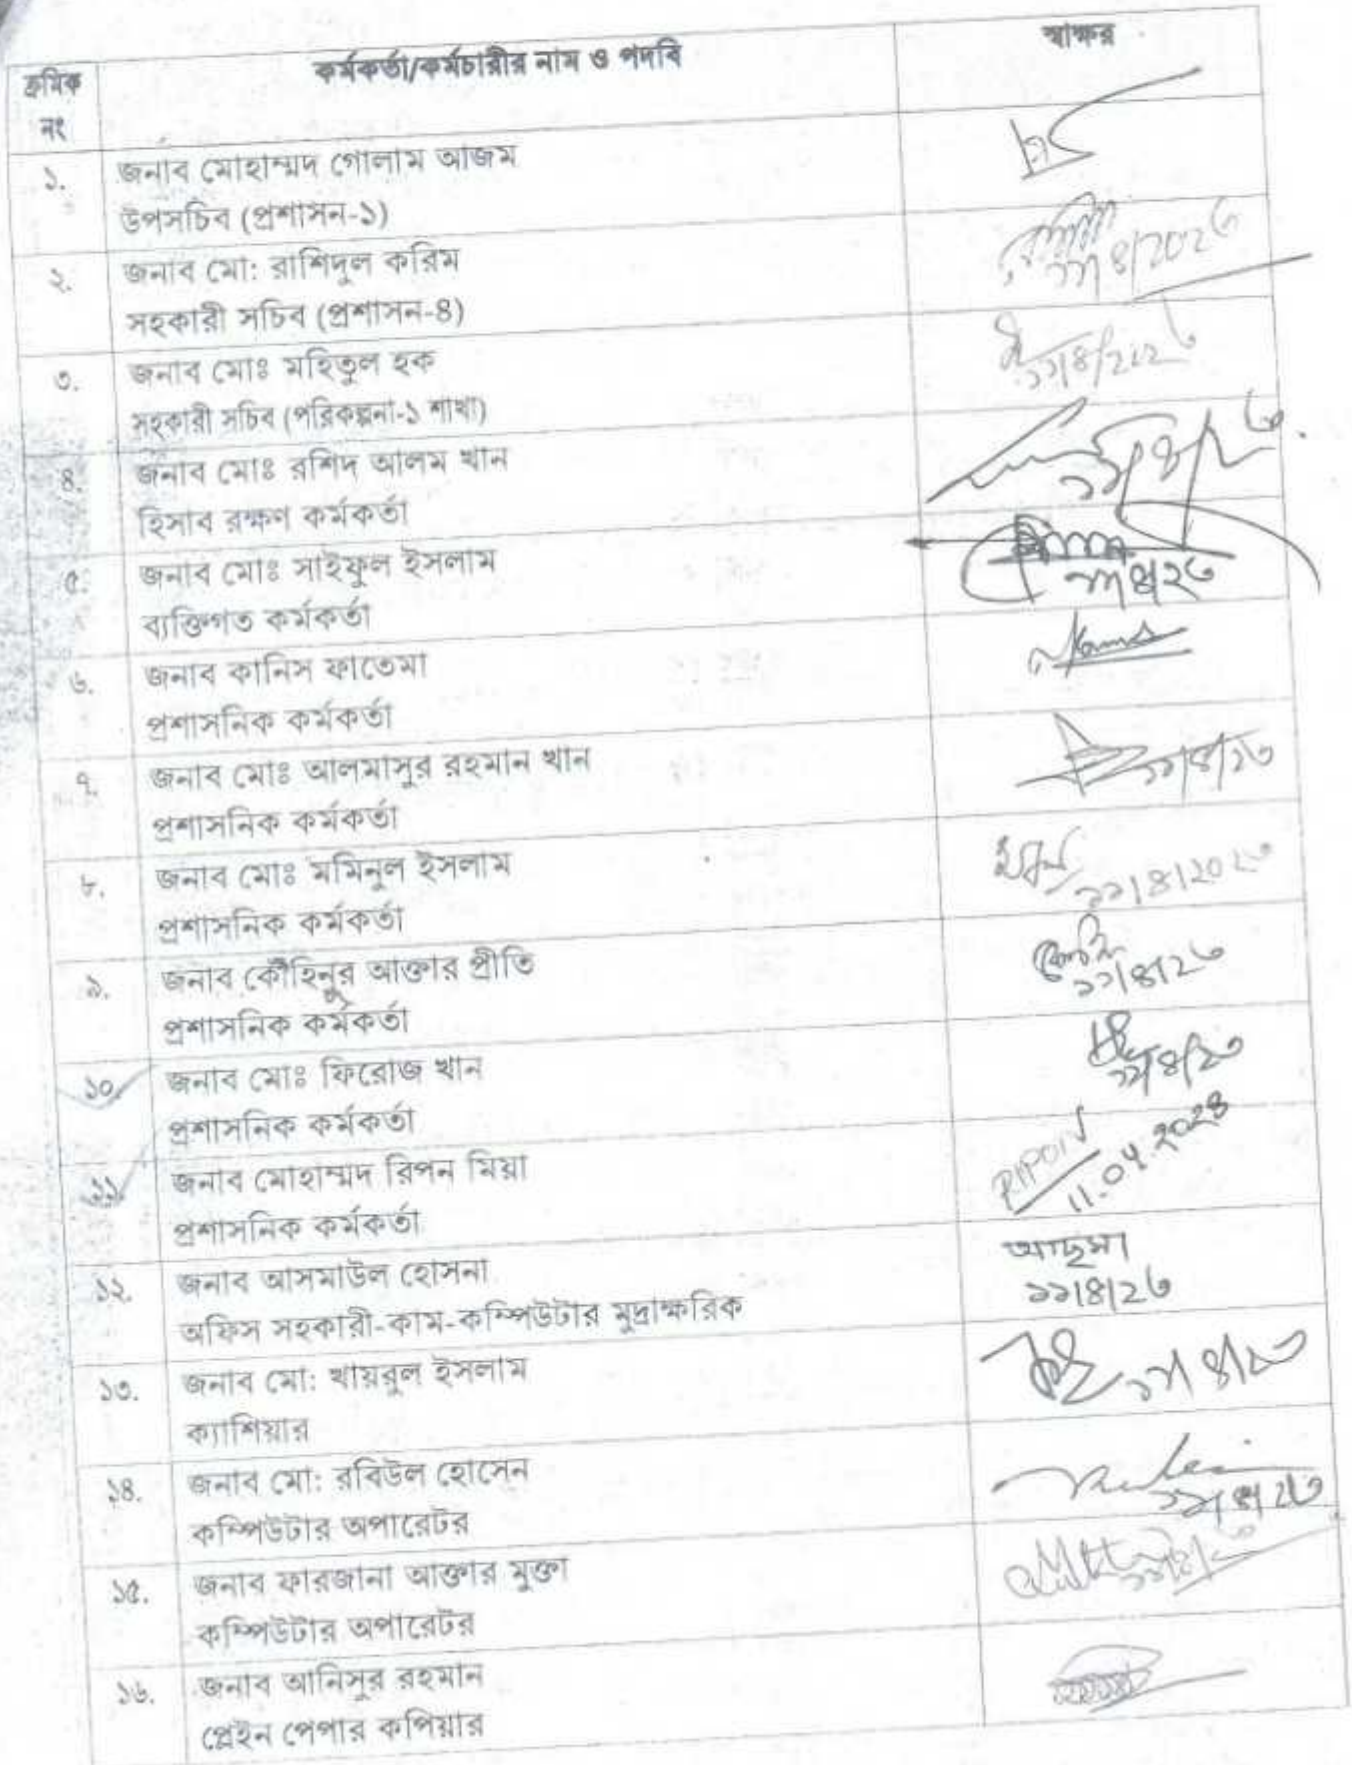 ক্রমিক নং
কর্মকর্তা/কর্মচারীর নাম ও পদবি
স্বাক্ষর
১.
জনাব মোহাম্মদ গোলাম আজম
উপসচিব (প্রশাসন-১)
২.
জনাব মো: রাশিদুল করিম
সহকারী সচিব (প্রশাসন-৪)
১১/৪/২০২৩
৩.
জনাব মোঃ মহিতুল হক
সহকারী সচিব (পরিকল্পনা-১ শাখা)
৪.
জনাব মোঃ রশিদ আলম খান
হিসাব রক্ষণ কর্মকর্তা
৫.
জনাব মোঃ সাইফুল ইসলাম
ব্যক্তিগত কর্মকর্তা
১১/৪/২৩
৬.
জনাব কানিস ফাতেমা
প্রশাসনিক কর্মকর্তা
৭.
জনাব মোঃ আলমাসুর রহমান খান
প্রশাসনিক কর্মকর্তা
১১/৪/২৩
৮.
জনাব মোঃ মমিনুল ইসলাম
প্রশাসনিক কর্মকর্তা
১১/৪/২০২৩
৯.
জনাব কৌহিনুর আক্তার প্রীতি
প্রশাসনিক কর্মকর্তা
১১/৪/২৩
১০.
জনাব মোঃ ফিরোজ খান
প্রশাসনিক কর্মকর্তা
১১/৪/২৩
১১.
জনাব মোহাম্মদ রিপন মিয়া
প্রশাসনিক কর্মকর্তা
RIPON
11.04.2023
১২.
জনাব আসমাউল হোসনা
অফিস সহকারী-কাম-কম্পিউটার মুদ্রাক্ষরিক
আছমা
১১/৪/২৩
১৩.
জনাব মো: খায়রুল ইসলাম
ক্যাশিয়ার
১১/৪/২৩
১৪.
জনাব মো: রবিউল হোসেন
কম্পিউটার অপারেটর
১১/৪/২৩
১৫.
জনাব ফারজানা আক্তার মুক্তা
কম্পিউটার অপারেটর
১৬.
জনাব আনিসুর রহমান
প্লেইন পেপার কপিয়ার